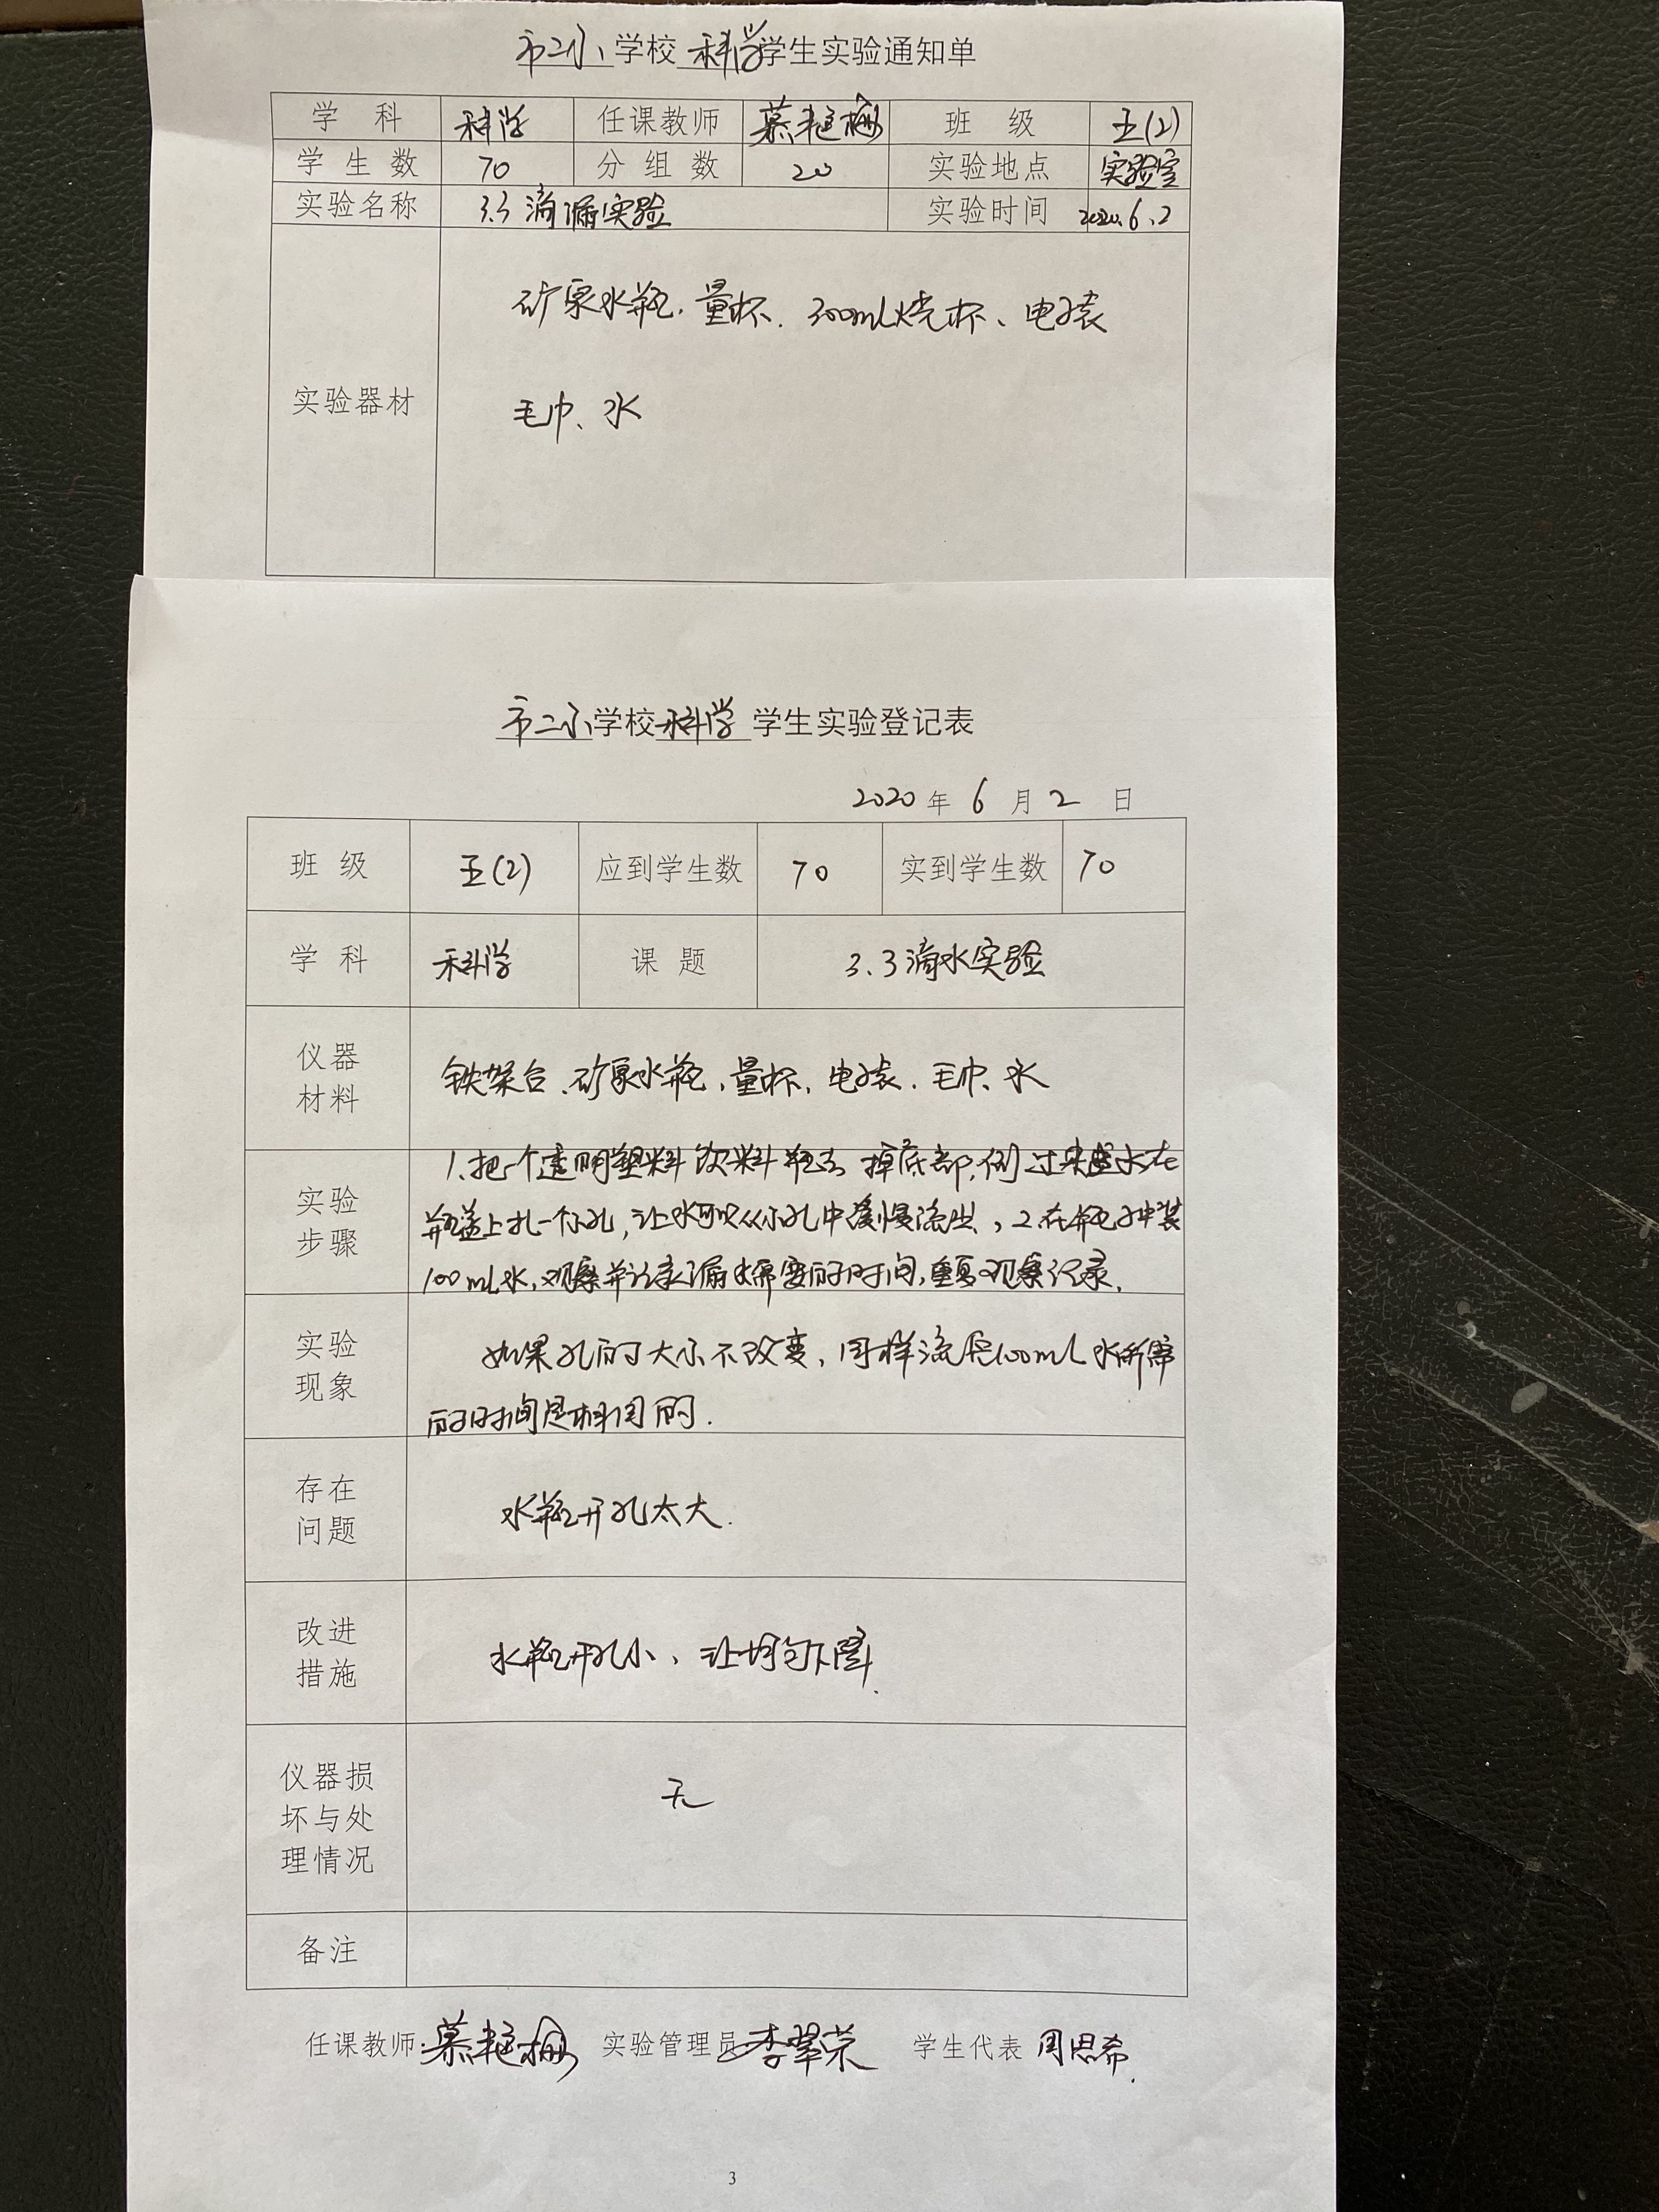 市二小学校 科学学生实验通知单
学 科 科学 任课教师 慕艳梅 班 级 五(2)
学 生 数 70 分 组 数 20 实验地点 实验室
实验名称 3.3 滴漏实验 实验时间 2020.6.2
矿泉水瓶、量杯、300mL烧杯、电子表
实验器材
毛巾、水
市二小学校科学 学生实验登记表
2020 年 6 月 2 日
班 级 五(2) 应到学生数 70 实到学生数 70
学 科 科学 课 题 3.3 滴水实验
仪器
材料
铁架台、矿泉水瓶、量杯、电子表、毛巾、水
实验
步骤
1、把一个透明塑料饮料瓶去掉底部,倒过来 水在
瓶盖上扎一个小孔,让水可以从小孔中缓慢流出、,2.在瓶子中装
100mL水,观察并记录漏水需要的时间,重复观察记录.
实验
现象
如果孔的大小不改变,同样流完100mL水所需
的时间是相同的.
存在
问题
水瓶开孔太大.
改进
措施
水瓶开孔小、让均匀下
仪器损
坏与处
理情况
无
备注
任课教师:慕艳梅 实验管理员 李翠荣 学生代表 周思希.
3